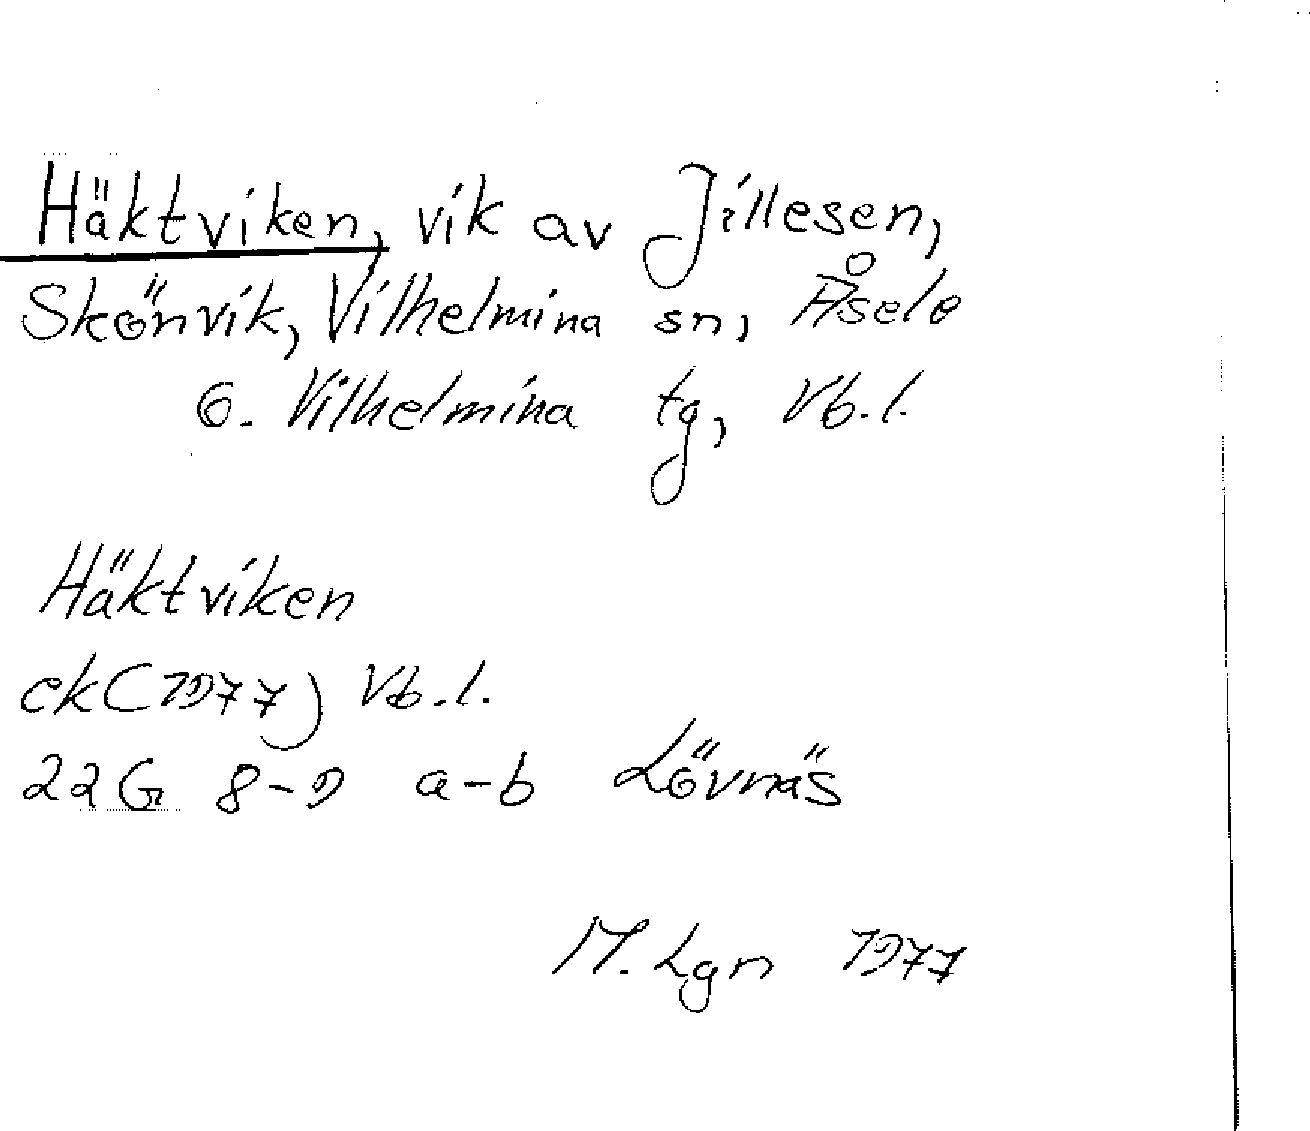 Häktviken, vik av Jillesen,
Skönvik, Vilhelmina sn, Åsele
o. Vilhelmina tg, Vb.l.
Häktviken
ek (1977) Vb.l.
22G 8-9 a-b Lövnäs
M. Lgn 1977